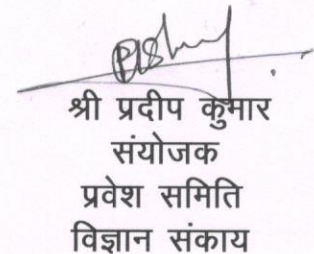 श्री प्रदीप कुमार
संयोजक
प्रवेश समिति
विज्ञान संकाय